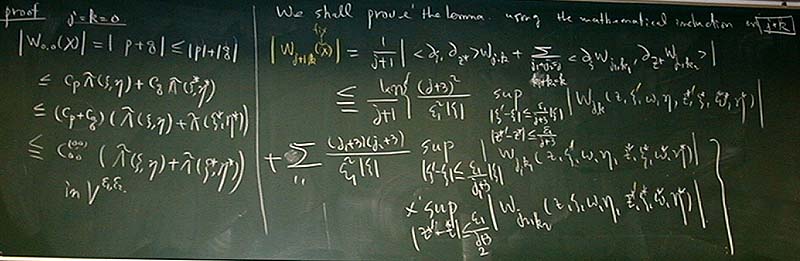 proof j=k=0
|W_{0,0}(X)| = | p+q | ≤ |p|+|q|
≤ C_p Λ̃(ξ,η) + C_q Λ̃(ξ*,η*)
≤ (C_p+C_q) ( Λ̃(ξ,η) + Λ̃(ξ*,η*) )
≤ C_{00}^{(00)} ( Λ̃(ξ,η) + Λ̃(ξ*,η*) )
in V
We shall prove the lemma using the mathematical induction on j+k
|W_{j+1,k}(X)| = 1/(j+1) | <∂_ξ, ∂_{z*}> W_{j,k} + Σ < ∂_ξ W_{j_1,k_1}, ∂_{z*} W_{j_2,k_2} > |
≤ /(j+1) { (j+3)^2 / ε_1^2|ξ| sup_{|ξ'-ξ| ≤ ε_1/(j+3) |ξ|, |z*'-z*| ≤ ε_1/(j+3)} | W_{j,k} (z, ξ', ω, η, z*', ξ*, ω*, η*) |
+ Σ (j_1+3)(j_2+3) / ε_1^2|ξ| sup_{|ξ'-ξ| ≤ ε_1/(j_1+3) |ξ|} | W_{j_1,k_1} (z, ξ', ω, η, z*, ξ*, ω*, η*) |
× sup | W_{j_2,k_2} (z, ξ, ω, η, z*', ξ*, ω*, η*) | }